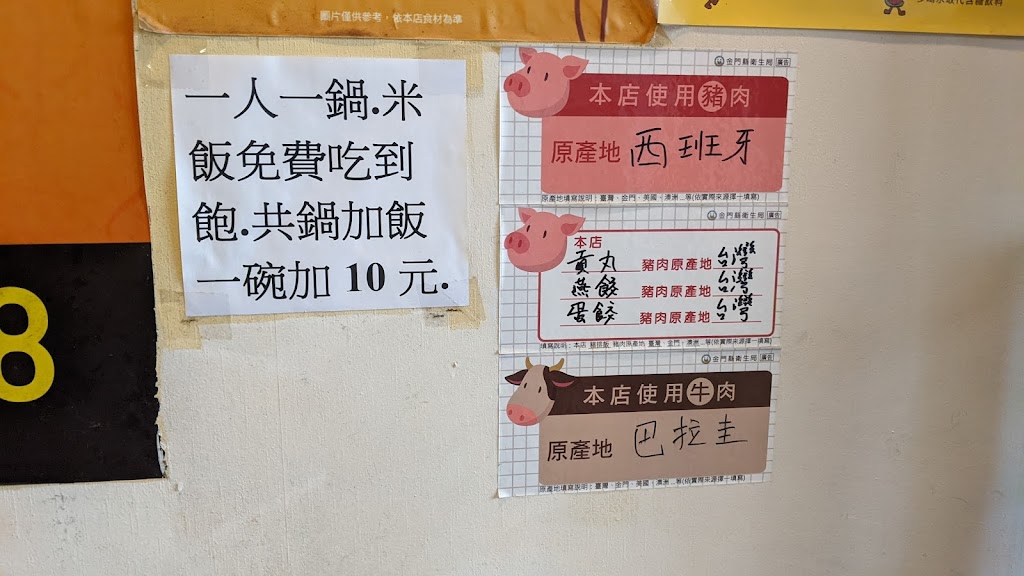 圖片僅供參考，依本店食材為準
一人一鍋.米
飯免費吃到
飽.共鍋加飯
一碗加 10 元.
8
金門縣衛生局 廣告
本店使用豬肉
原產地 西班牙
原產地填寫說明：臺灣、金門、美國、澳洲...等(依實際來源擇一填寫)
金門縣衛生局 廣告
本店
貢丸 豬肉原產地 台灣
魚餃 豬肉原產地 台灣
蛋餃 豬肉原產地 台灣
金門縣衛生局 廣告
本店使用牛肉
原產地 巴拉圭
原產地填寫說明：臺灣、金門、美國、澳洲...等(依實際來源擇一填寫)